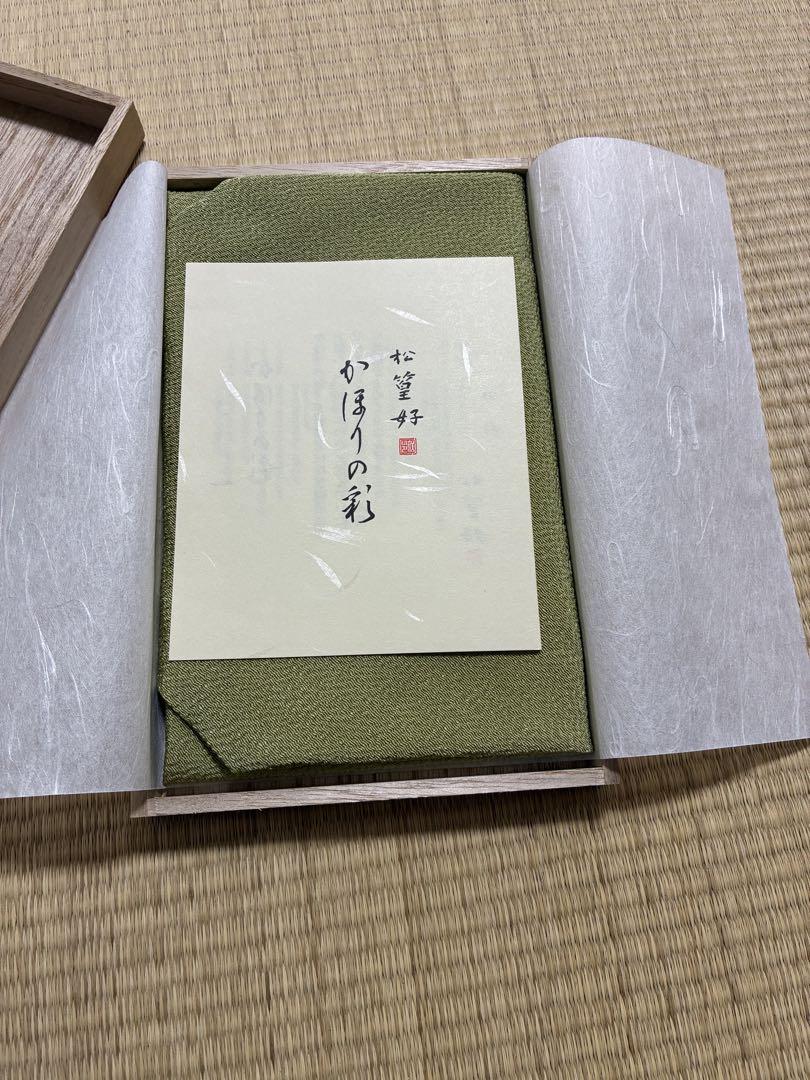 松篁好
かほりの彩